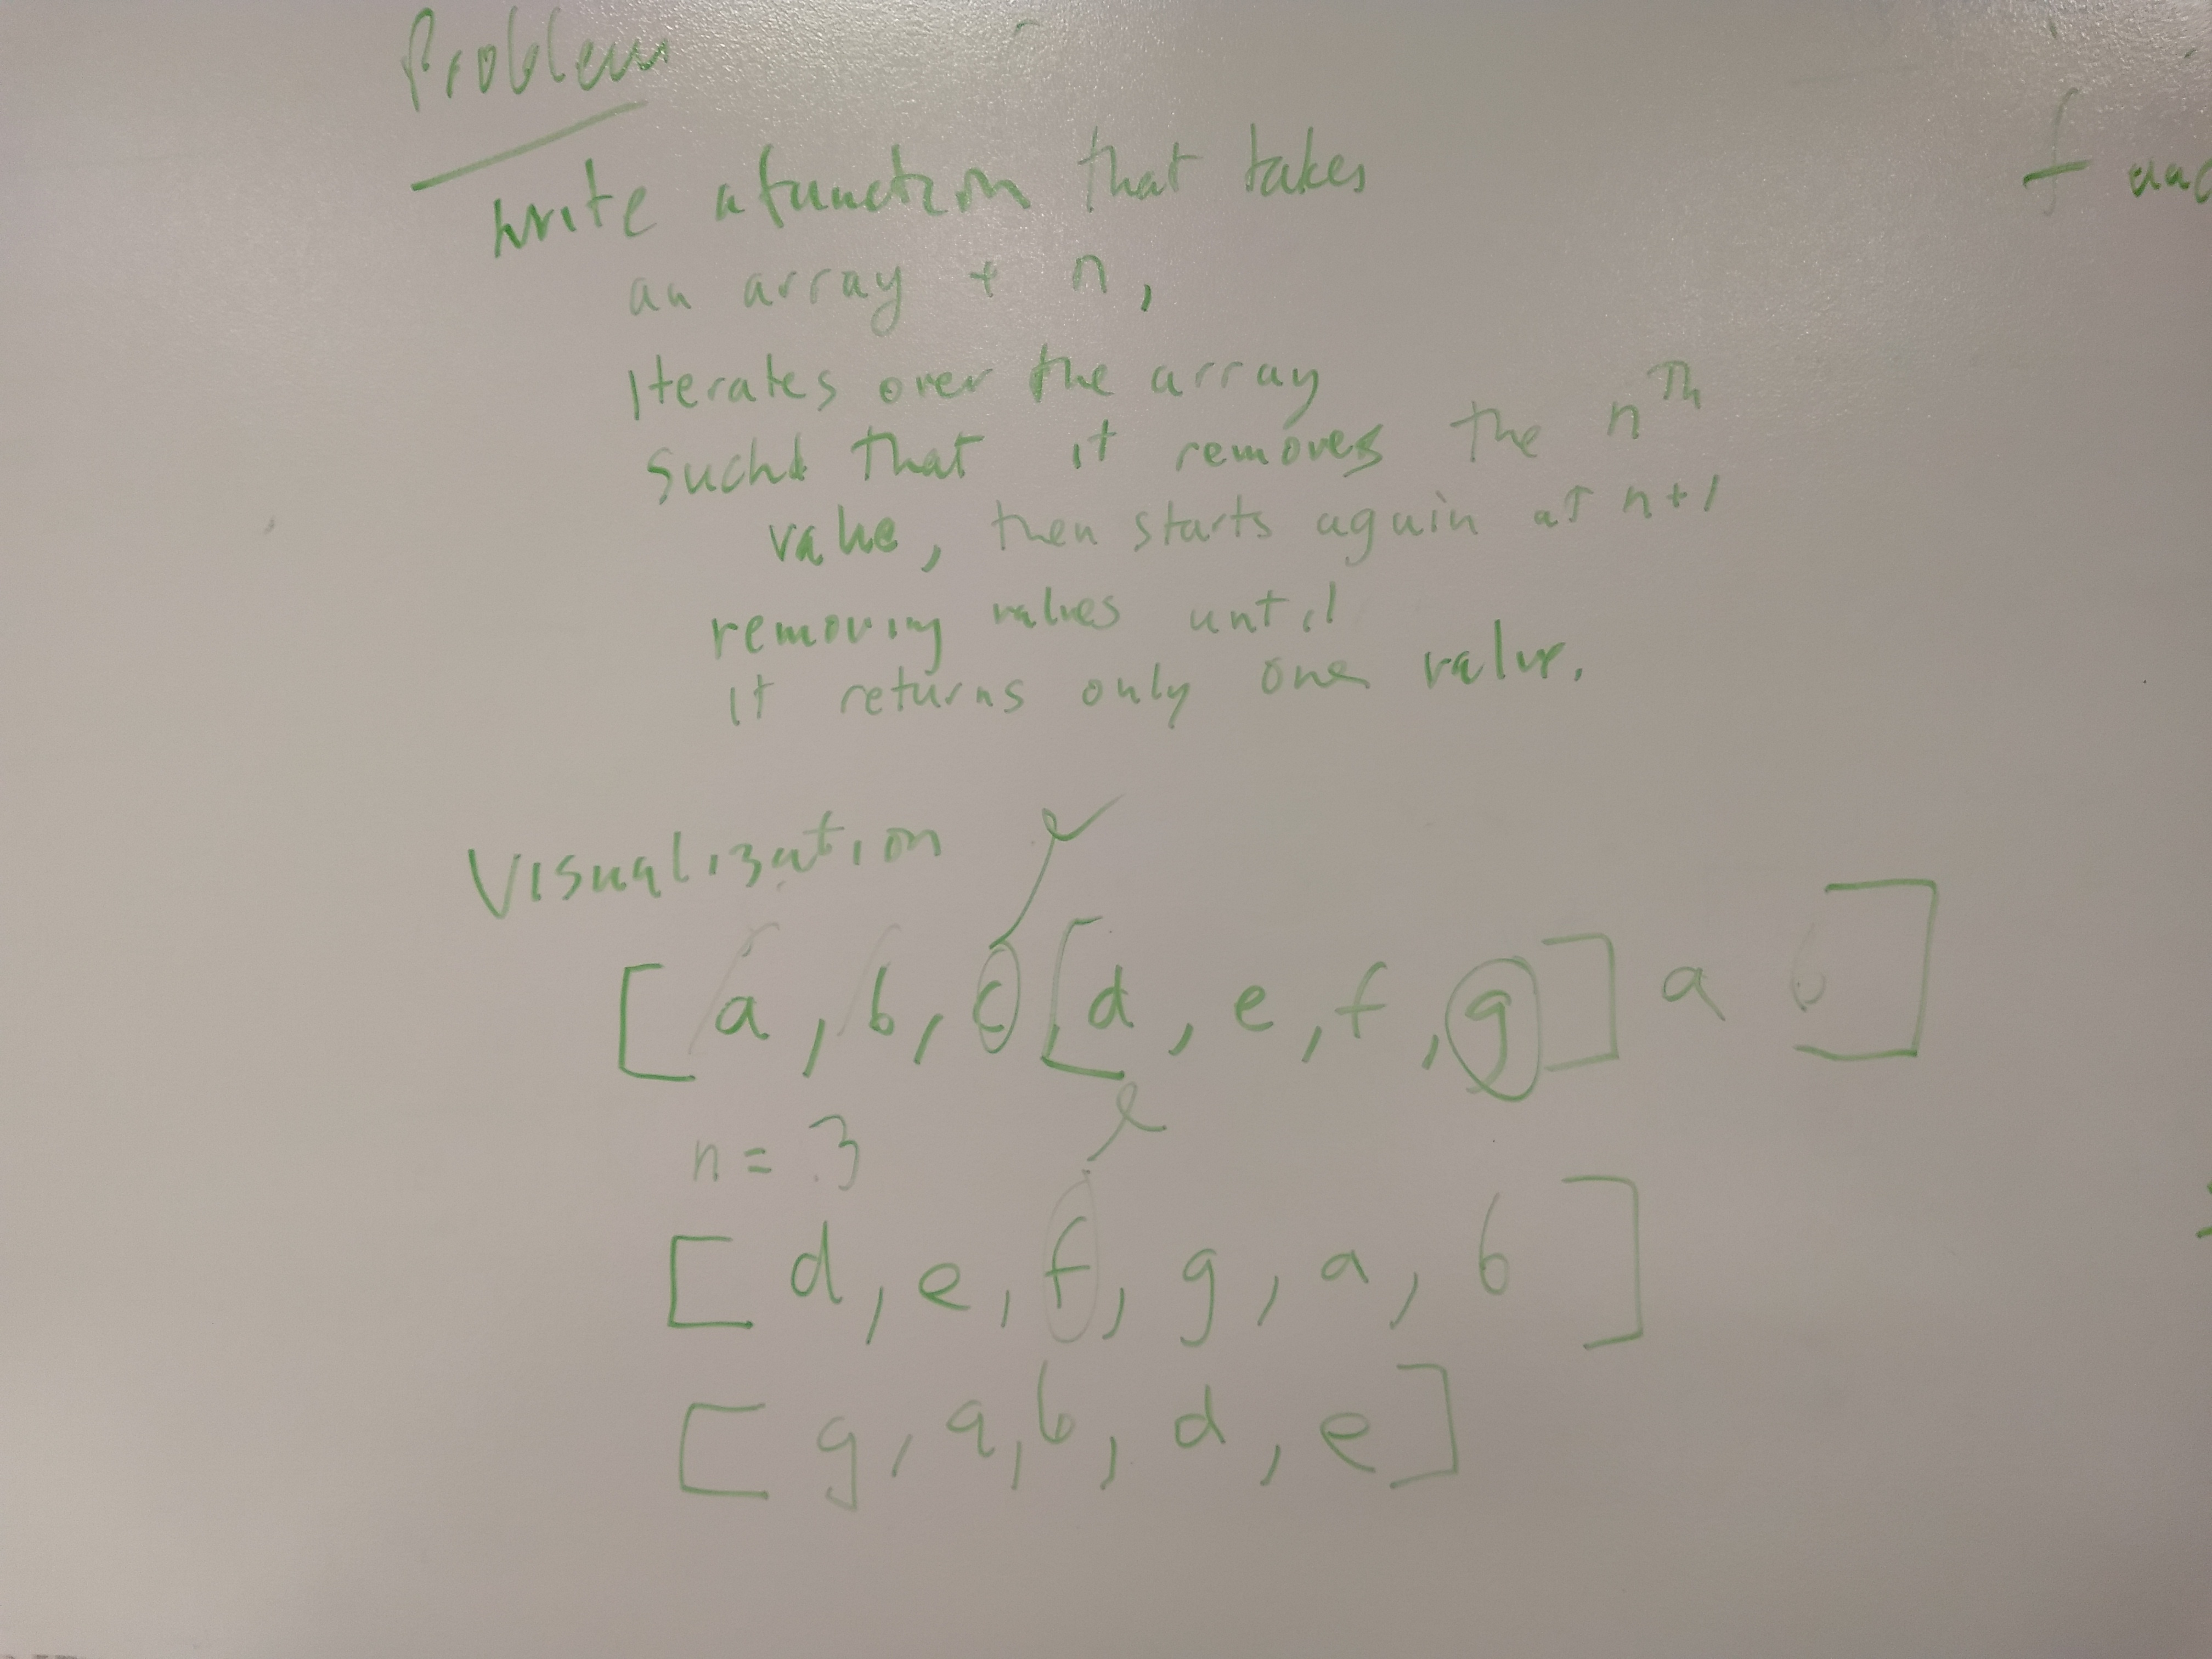 Problem
write a function that takes
an array + n,
Iterates over the array
such that it removes the nTh
value, then starts again at n+1
removing values until
it returns only one value.
Visualization
[ a , b , c [ , d , e , f , g ] a ]
n = 3
[ d , e , f , g , a , b ]
[ g , a , b , d , e ]
f